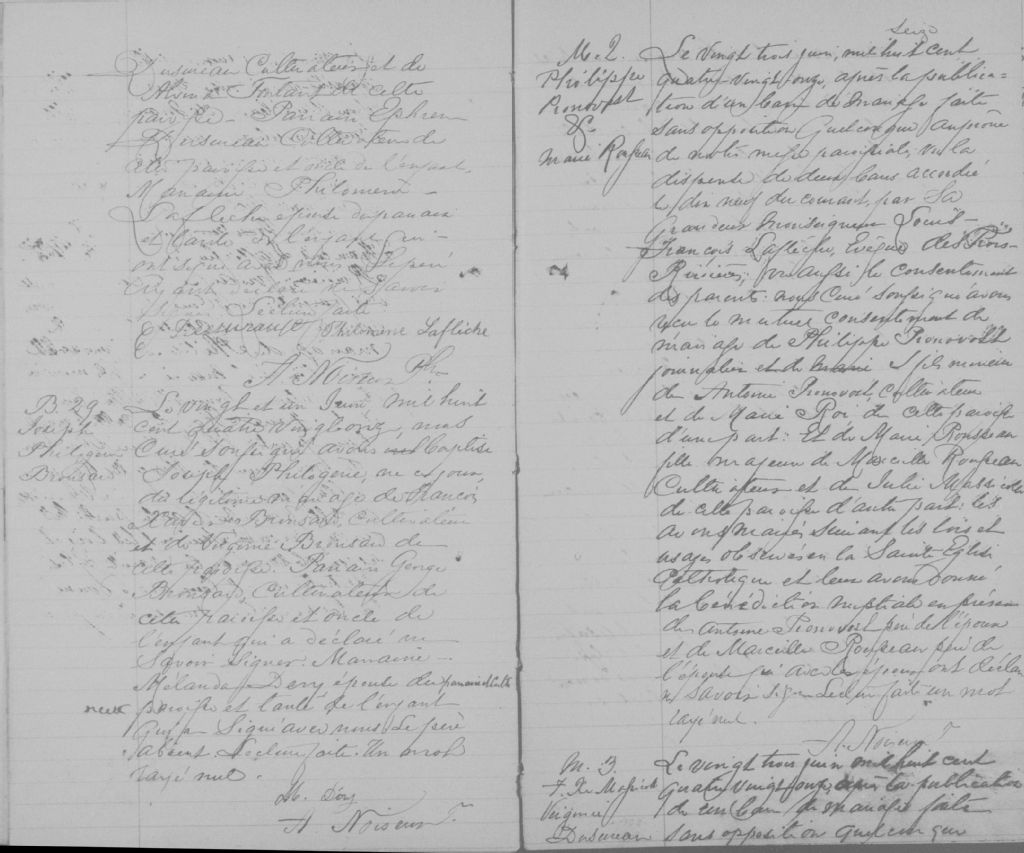 Dusureau Cultivateur et de
cette
paroisse. Parrain Ephrem
Dusureau Cultivateur de
cette paroisse et oncle de l'enfant,
Marraine Philomène
Laflèche épouse du parrain
et tante de l'enfant qui
ont signé avec nous. Le père
Lecture faite
Philomène Laflèche
A Noiseux Ptre
B. 29
Joseph
Philogène
Bronsard
Le vingt et un Juin, mil huit
cent quatre vingt onze, nous
Curé soussigné avons baptisé
Joseph Philogène, né ce jour,
du légitime mariage de François
Xavier Bronsard, Cultivateur
et de Virginie Bronsard de
cette paroisse. Parrain George
Bronsard, Cultivateur de
cette paroisse et oncle de
l'enfant qui a déclaré ne
savoir signer. Marraine
Mélanda Dery épouse du parrain de cette
paroisse et tante de l'enfant
qui a signé avec nous. Le père
absent. Lecture faite. Un mot
rayé nul.
M. Dery
A Noiseux Ptr.
M. 2.
Philippe
Pronovost
&
Marie Rousseau
seize
Le vingt trois juin, mil huit cent
quatre vingt onze, après la publica-
tion d'un banc de mariage faite
sans opposition quelconque au prône
de notre messe paroissiale; vu la
dispense de deux bans accordée
le dix neuf du courant, par Sa
Grandeur Monseigneur Louis-
François Laflèche, Evêque des Trois-
Rivières; vu aussi le consentement
des parents: nous Curé soussigné avons
reçu le mutuel consentement de
mariage de Philippe Pronovost
journalier et de Marie fils mineur
de Antoine Pronovost, Cultivateur
et de Marie Roi de cette paroisse
d'une part: Et de Marie Rousseau
fille majeure de Marcelle Rousseau
Cultivateur et de Julie Massicotte
de cette paroisse d'autre part: les
avons mariés suivant les lois et
usages observés en la Sainte Eglise
Catholique et leur avons donné
la bénédiction nuptiale en présence
de Antoine Pronovost père de l'époux
et de Marcelle Rousseau père de
l'épouse qui avec les époux ont déclaré
ne savoir signer Lecture faite un mot
rayé nul.
A. Noiseux Ptr
M. 3.
F. X. Massicot
Virginie
Dusureau
Le vingt trois juin mil huit cent
quatre vingt onze, après la publication
de un banc de mariage faite
sans opposition quelconque